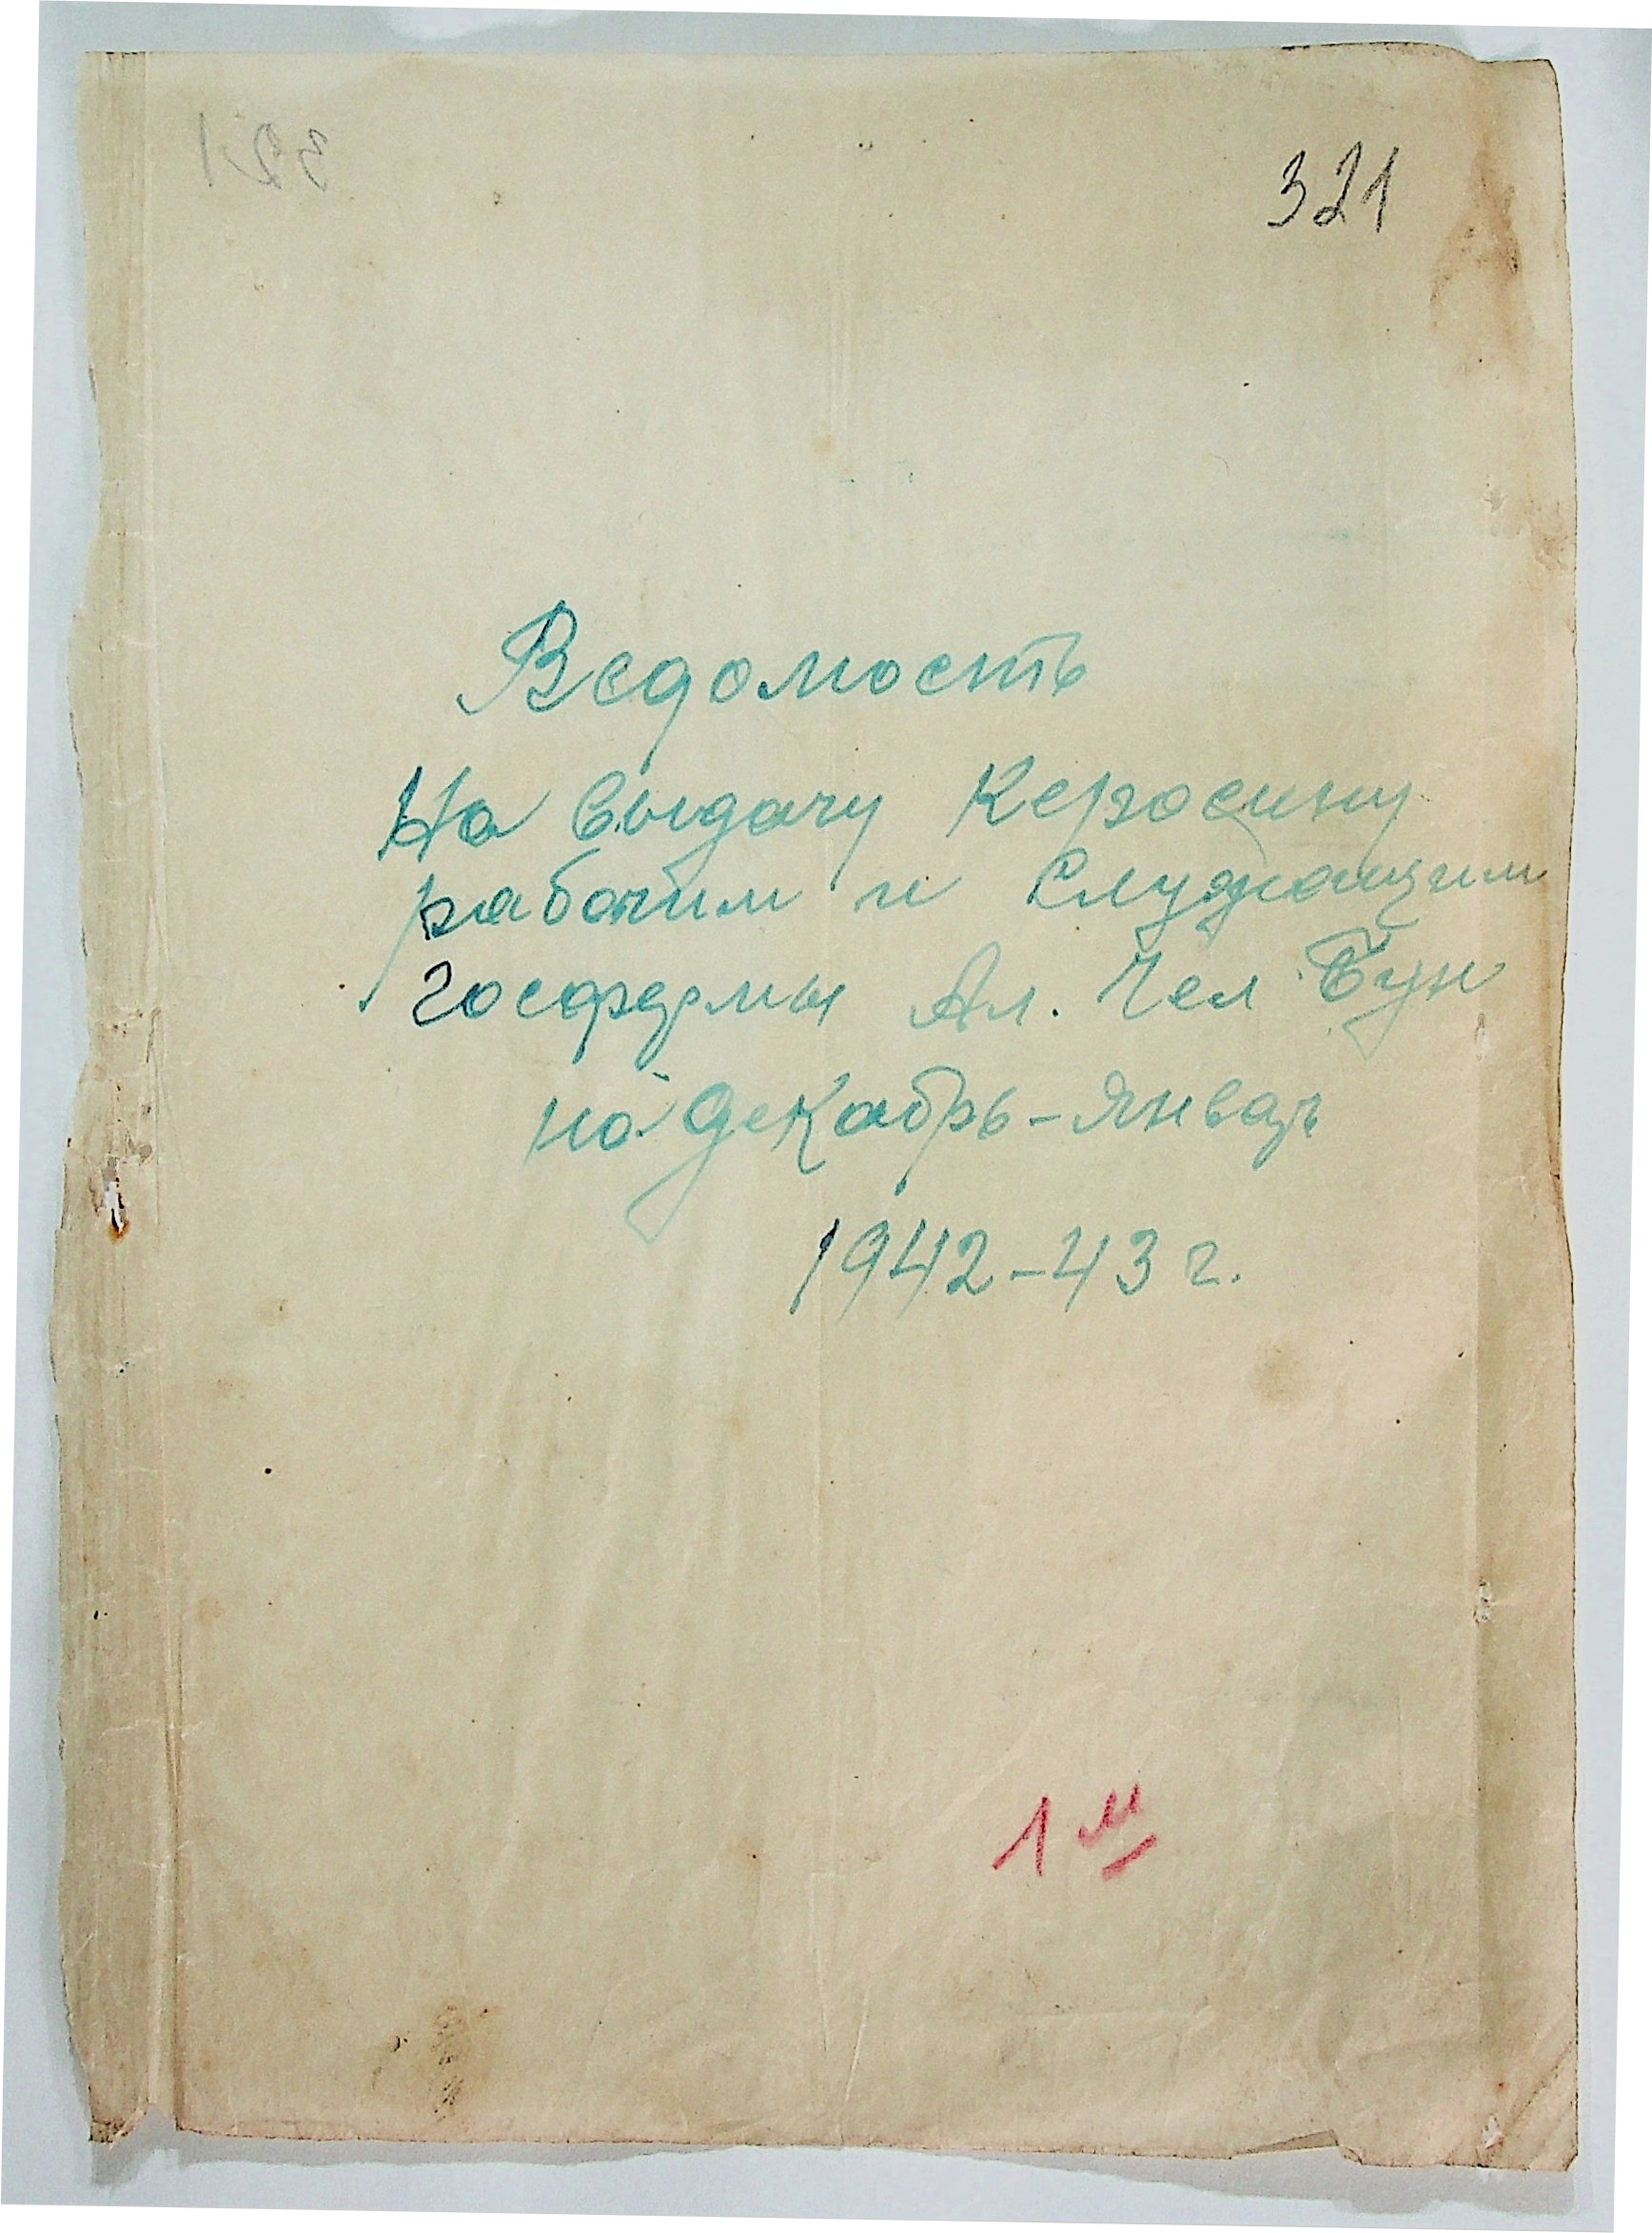 321
Ведомость
На выдачу Керосину
рабочим и Служащим
госфермы Ал. Чел Бун
на декабрь-январь
1942-43 г.
1 м